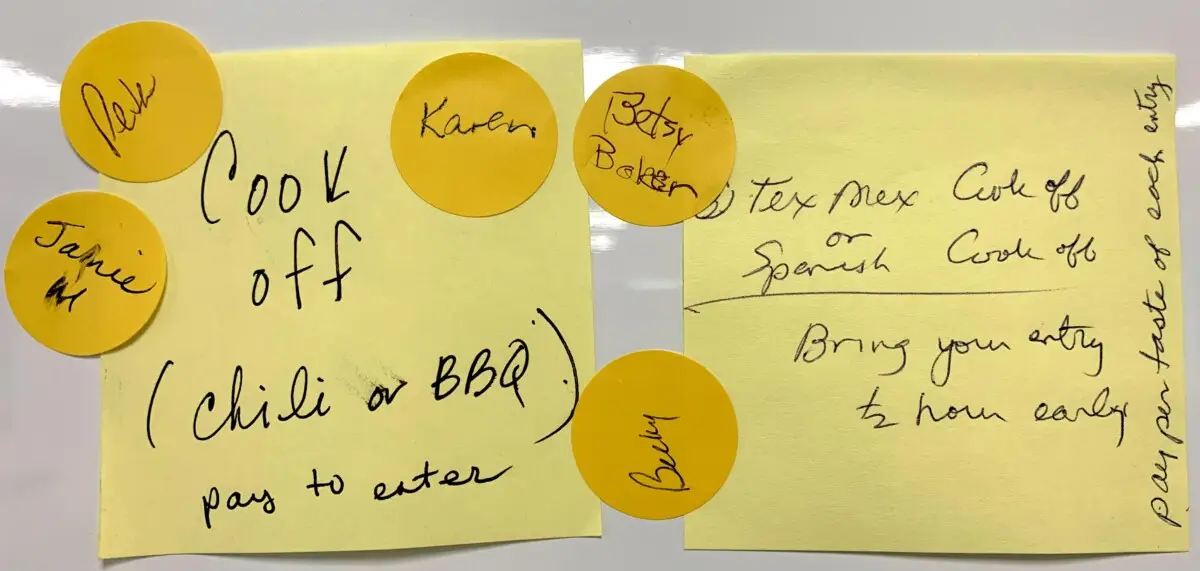 Karen
Betsy
Baker
Jamie
Cook
off
(Chili or BBQ)
pay to enter
Becky
Tex Mex Cook off
or
Spanish Cook off
Bring your entry
½ hour early
pay per taste of each entry